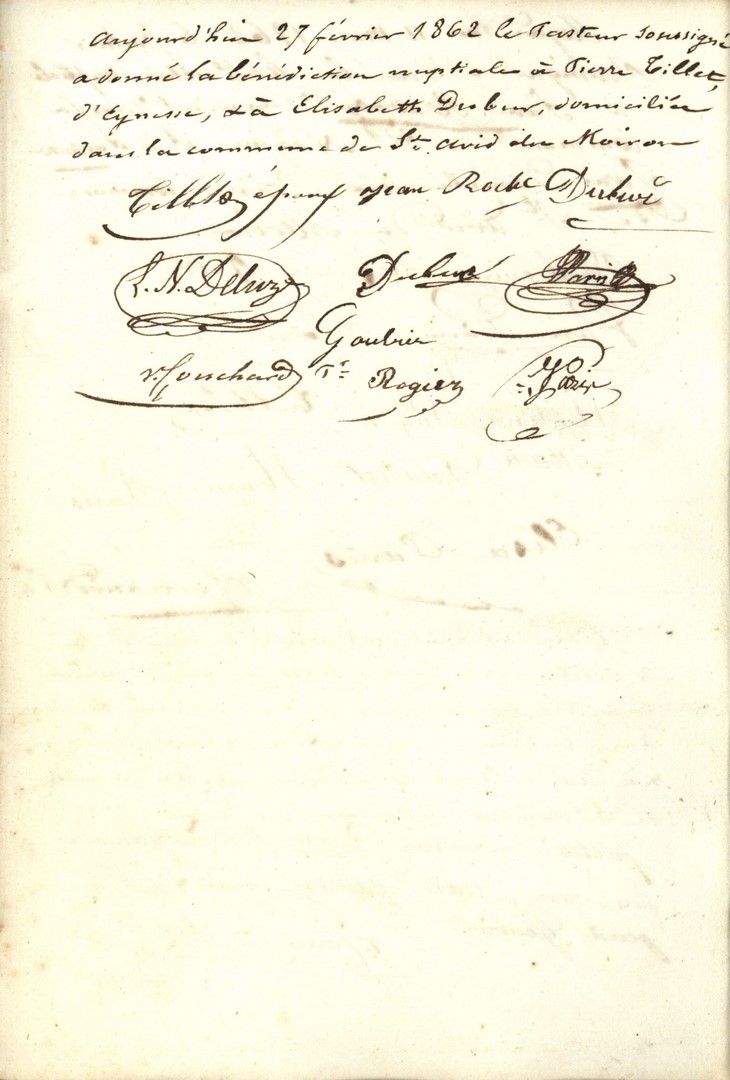 Aujourd'hui 27 février 1862 le Pasteur soussigné
a donné la bénédiction nuptiale à Pierre Tillet,
d'Eynesse, & à Elisabeth Dubur, domiciliée
dans la commune de St. avid du Moiron
Tillet époux Jean Roche Dubur
L. N. Deluze Dubur
Gautier
Couchard Rogier